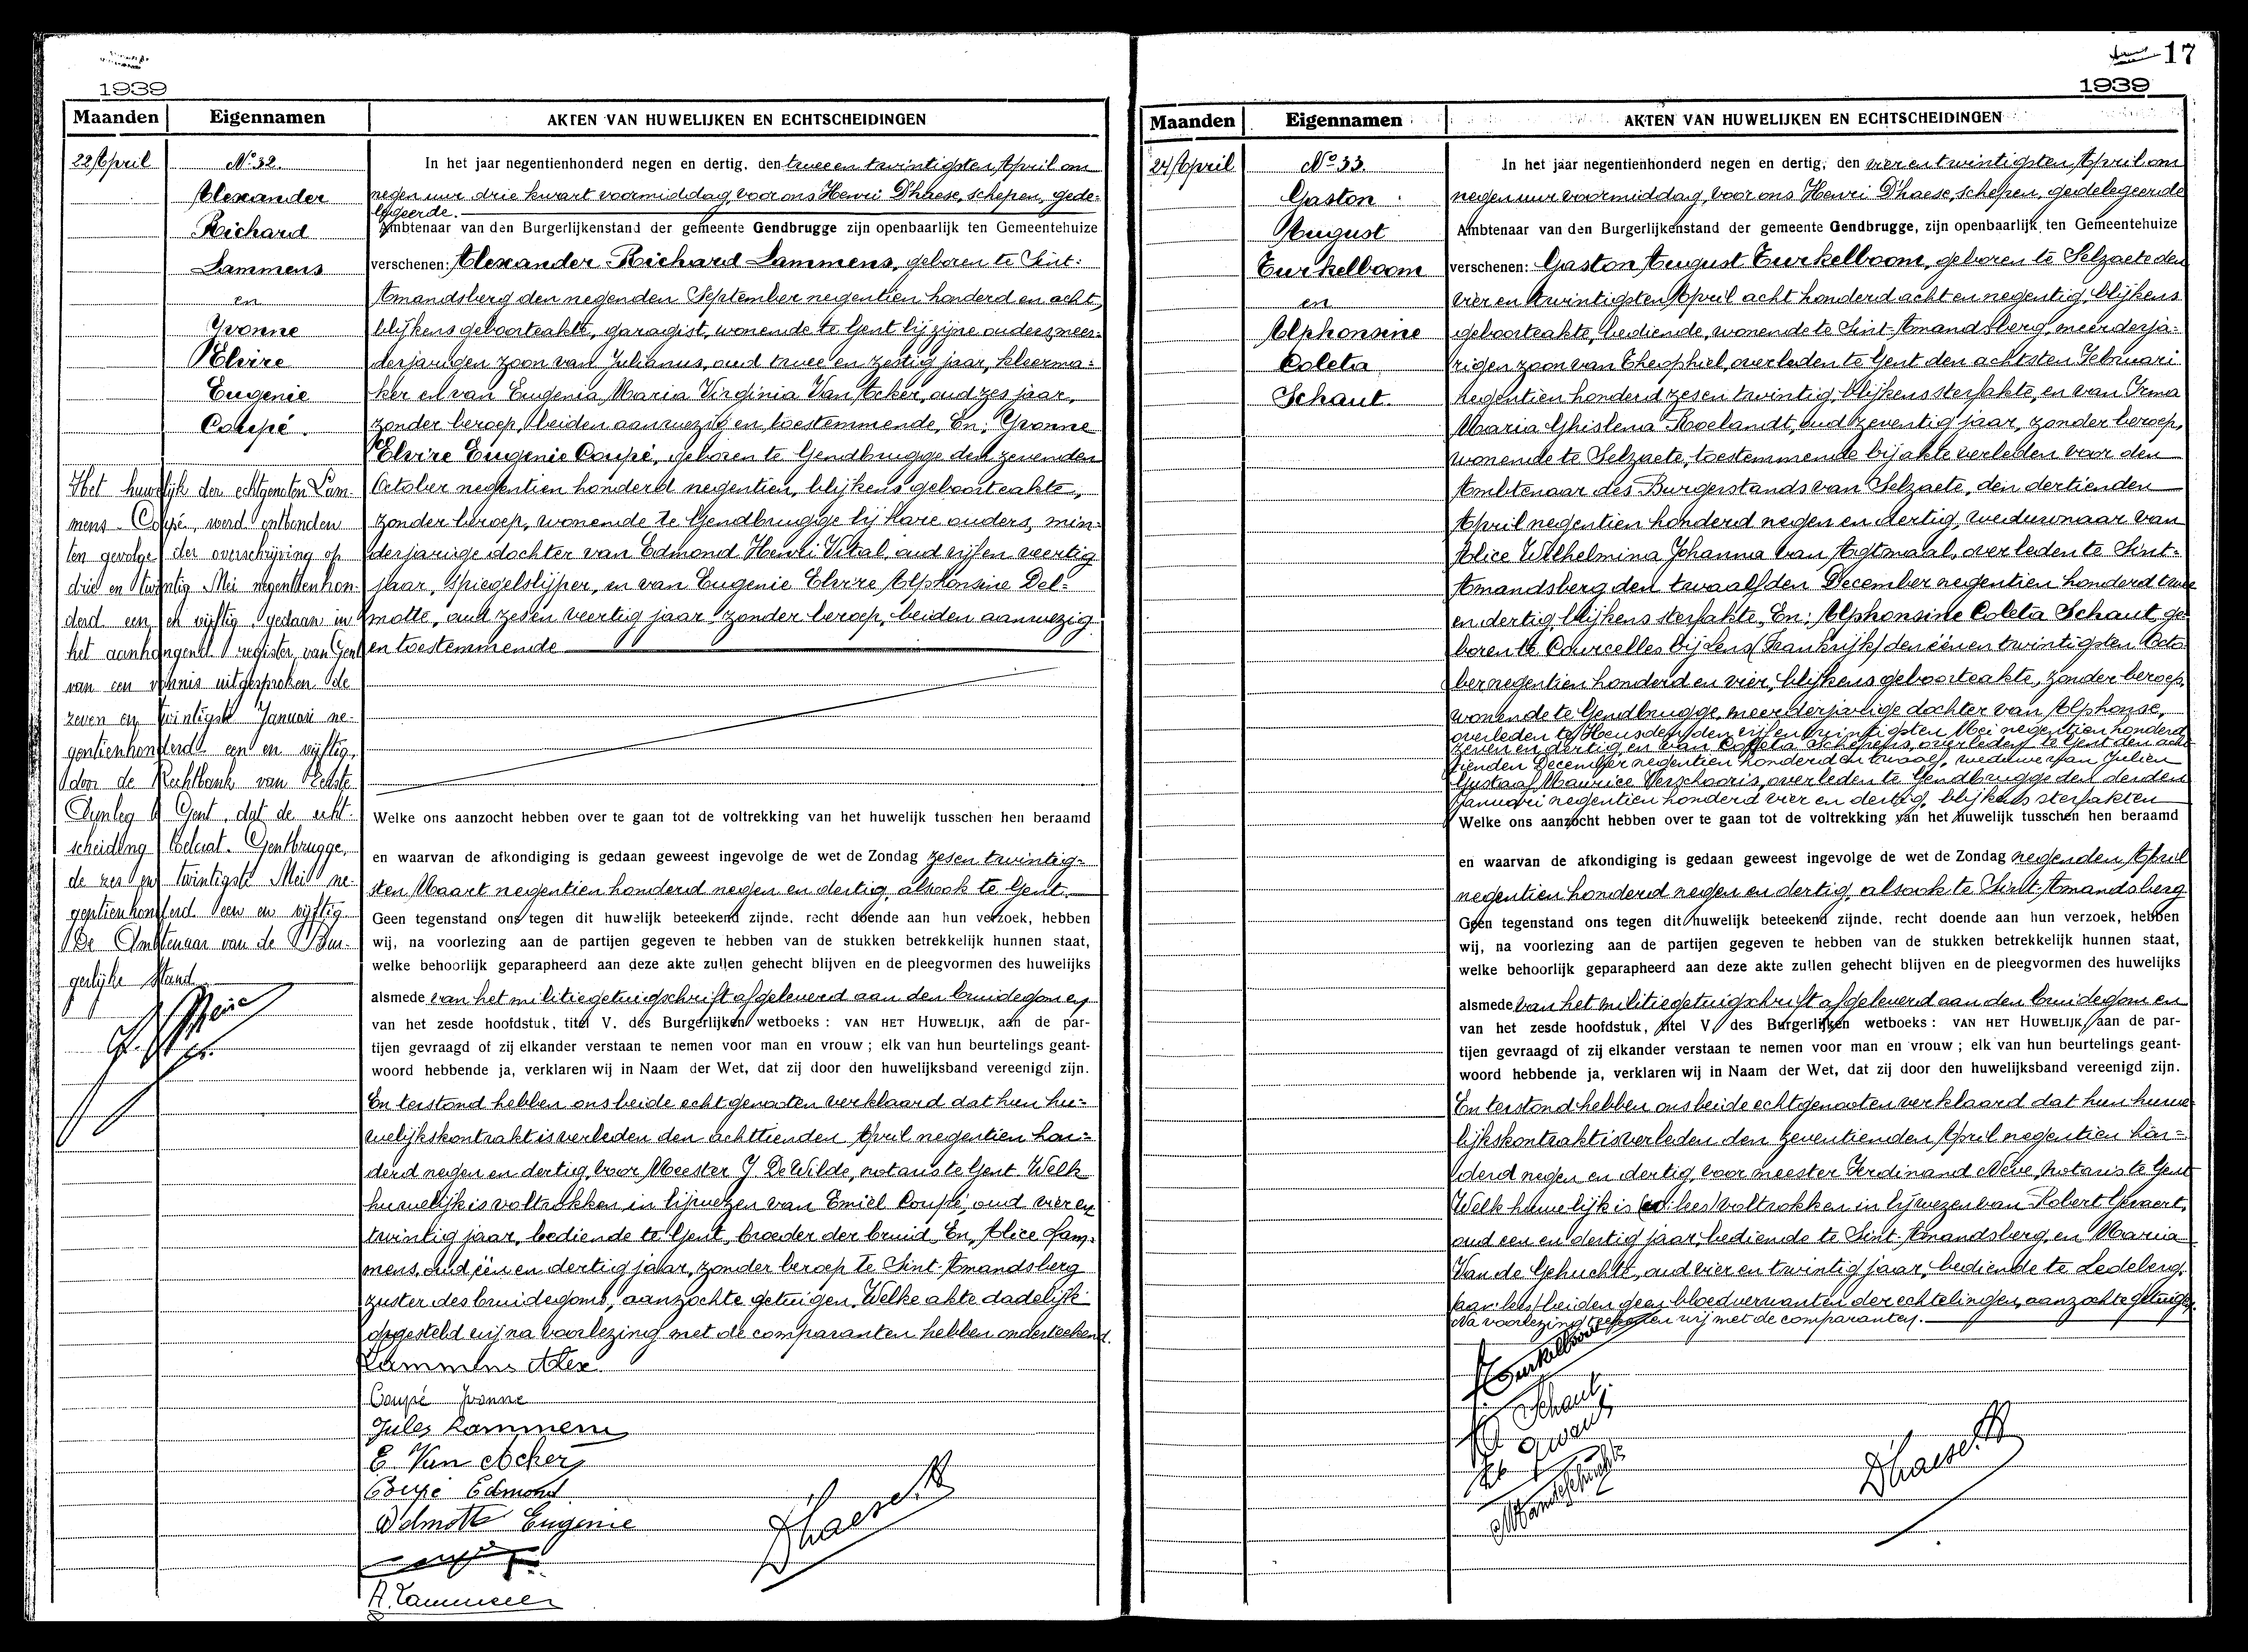 1939
Maanden
Eigennamen
AKTEN VAN HUWELIJKEN EN ECHTSCHEIDINGEN
22 April
No 32.
Alexander
Richard
Lammens
en
Yvonne
Elvire
Eugenie
Coupé.
Het huwelijk der echtgenoten Lam-
mens - Coupé, werd ontbonden
ten gevolge der overschrijving op
drie en twintig Mei negentienhon-
derd een en vijftig gedaan in
het aanhangend register van Gent
van een vonnis uitgesproken de
zeven en twintigste Januari ne-
gentienhonderd een en vijftig,
door de Rechtbank van Eerste
Aanleg te Gent, dat de echt-
scheiding toelaat. Gentbrugge,
de zes en twintigste Mei ne-
gentienhonderd een en vijftig
De Ambtenaar van de Bur-
gerlijke stand
In het jaar negentienhonderd negen en dertig, den twee en twintigsten April om
negen uur drie kwart voormiddag, voor ons Henri D'haese, schepen, gede-
legeerde.
Ambtenaar van den Burgerlijkenstand der gemeente Gendbrugge zijn openbaarlijk ten Gemeentehuize
verschenen: Alexander Richard Lammens, geboren te Sint-
Amandsberg den negenden September negentien honderd en acht,
blijkens geboorteakte, garagist, wonende te Gent bij zijne ouders, meer-
derjarigen zoon van Julianus, oud twee en zestig jaar, kleerma-
ker en van Eugenia Maria Virginia Van Acker, oud zes jaar,
zonder beroep, beiden aanwezig en toestemmende, En: Yvonne
Elvire Eugenie Coupé, geboren te Gendbrugge den zevenden
October negentien honderd negentien, blijkens geboorteakte,
zonder beroep, wonende te Gendbrugge bij hare ouders, min-
derjarige dochter van Edmond Henri Vital, oud vijf en veertig
jaar, spiegelslijper, en van Eugenie Elvire Alphonsine Del-
motte, oud zes en veertig jaar, zonder beroep, beiden aanwezig
en toestemmende
Welke ons aanzocht hebben over te gaan tot de voltrekking van het huwelijk tusschen hen beraamd
en waarvan de afkondiging is gedaan geweest ingevolge de wet de Zondag zes en twintig-
sten Maart negentien honderd negen en dertig, alsook te Gent.
Geen tegenstand ons tegen dit huwelijk beteekend zijnde, recht doende aan hun verzoek, hebben
wij, na voorlezing aan de partijen gegeven te hebben van de stukken betrekkelijk hunnen staat,
welke behoorlijk geparapheerd aan deze akte zullen gehecht blijven en de pleegvormen des huwelijks
alsmede van het militiegetuigschrift afgeleverd aan den bruidegom en
van het zesde hoofdstuk, titel V. des Burgerlijken wetboeks: VAN HET HUWELIJK, aan de par-
tijen gevraagd of zij elkander verstaan te nemen voor man en vrouw; elk van hun beurtelings geant-
woord hebbende ja, verklaren wij in Naam der Wet, dat zij door den huwelijksband vereenigd zijn.
En terstond hebben ons beide echtgenooten verklaard dat hun hu-
welijkskontrakt is verleden den achttienden April negentien hon-
derd negen en dertig, voor Meester J. De Wilde, notaris te Gent. Welk
huwelijk is voltrokken in bijwezen van Emiel Coupé, oud vier en
twintig jaar, bediende te Gent, broeder der bruid, En, Alice Lam-
mens, oud één en dertig jaar, zonder beroep te Sint-Amandsberg
zuster des bruidegoms, aanzochte getuigen. Welke akte dadelijk
opgesteld wij na voorlezing met de comparanten hebben onderteekend.
Lammens Alex
Coupé Yvonne
Jules Lammens
E. Van Acker
Coupé Edmond
Delmotte Eugenie
A. Lammens
D'haese H
17
1939
Maanden
Eigennamen
AKTEN VAN HUWELIJKEN EN ECHTSCHEIDINGEN
24 April
No 33.
Gaston
August
Turkelboom
en
Alphonsine
Coleta
Schaut.
In het jaar negentienhonderd negen en dertig, den vier en twintigsten April om
negen uur voormiddag, voor ons Henri D'haese, schepen, gedelegeerde
Ambtenaar van den Burgerlijkenstand der gemeente Gendbrugge, zijn openbaarlijk ten Gemeentehuize
verschenen: Gaston August Turkelboom, geboren te Selzaete den
vier en twintigsten April acht honderd acht en negentig, blijkens
geboorteakte, bediende, wonende te Sint-Amandsberg, meerderja-
rigen zoon van Theophiel, overleden te Gent den achtsten Februari
negentien honderd zes en twintig, blijkens sterfakte, en van Irma
Maria Ghislena Roelandt, oud zeventig jaar, zonder beroep,
wonende te Selzaete, toestemmende bij akte verleden voor den
Ambtenaar des Burgerstands van Selzaete, den dertienden
April negentien honderd negen en dertig, weduwnaar van
Alice Wilhelmina Johanna van Agtmaal, overleden te Sint-
Amandsberg den twaalfden December negentien honderd twee
en dertig, blijkens sterfakte, En: Alphonsine Coleta Schaut, ge-
boren te Courcelles bij Lens (Frankrijk) den één en twintigsten Octo-
ber negentien honderd en vier, blijkens geboorteakte, zonder beroep,
wonende te Gendbrugge, meerderjarige dochter van Alphonse,
overleden te Heusden den vijf en twintigsten Mei negentien honderd
zeven en dertig, en van Coleta Schepens, overleden te Gent den acht-
tienden December negentien honderd en twaalf, weduwe van Julien
Gustaaf Maurice Verschooris, overleden te Gendbrugge den derden
Januari negentien honderd vier en dertig, blijkens sterfakten
Welke ons aanzocht hebben over te gaan tot de voltrekking van het huwelijk tusschen hen beraamd
en waarvan de afkondiging is gedaan geweest ingevolge de wet de Zondag negenden April
negentien honderd negen en dertig, alsook te Sint-Amandsberg
Geen tegenstand ons tegen dit huwelijk beteekend zijnde, recht doende aan hun verzoek, hebben
wij, na voorlezing aan de partijen gegeven te hebben van de stukken betrekkelijk hunnen staat,
welke behoorlijk geparapheerd aan deze akte zullen gehecht blijven en de pleegvormen des huwelijks
alsmede van het militiegetuigschrift afgeleverd aan den bruidegom en
van het zesde hoofdstuk, titel V des Burgerlijken wetboeks: VAN HET HUWELIJK, aan de par-
tijen gevraagd of zij elkander verstaan te nemen voor man en vrouw; elk van hun beurtelings geant-
woord hebbende ja, verklaren wij in Naam der Wet, dat zij door den huwelijksband vereenigd zijn.
En terstond hebben ons beide echtgenooten verklaard dat hun huwe-
lijkskontrakt is verleden den zeventienden April negentien hon-
derd negen en dertig, voor meester Ferdinand Nève, notaris te Gent
Welk huwelijk is voltrokken in bijwezen van Robert Gevaert,
oud een en dertig jaar, bediende te Sint-Amandsberg, en Maria
Van de Gehuchte, oud vier en twintig jaar, bediende te Ledeberg,
beiden geen bloedverwanten der echtelingen, aanzochte getuigen.
Na voorlezing wij met de comparanten.
Turkelboom
Schaut
D'haese H